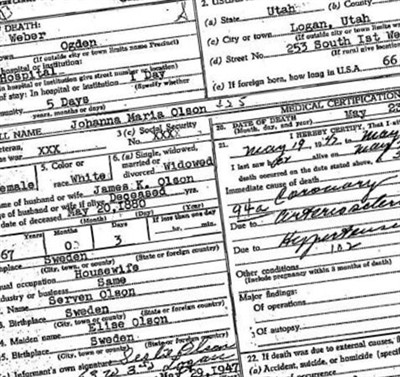 DEATH:
Weber
Ogden
(If outside city or town limits name Precinct)
hospital or institution:
Hospital
in hospital or institution give street number or location)
of stay: In hospital or institution 1 Day
(Specify whether
5 Days
community, months or days)
LL NAME Johanna Maria Olson
3 (c) Social Security
No. XXX
xxx
5. Color or
race White
6. (a) Single, widowed, married or
divorced Widowed
Female
Name of husband or wife James K. Olson
of husband or wife if alive Deceased yrs.
May 20 1880
(Month) (Day) (Year)
Years Months Days If less than one day
67 0 3 hr. min.
Sweden
(City, town, or county) (State or foreign country)
Usual occupation Housewife
Industry or business Same
Name Serven Olson
Birthplace Sweden
(City, town, or county) (State or foreign country)
4. Maiden name Elise Olson
5. Birthplace Sweden
(City, town, or county) (State or foreign country)
Informant's own signature
May 29, 1947
2. USUAL
(a) State Utah (b) County
(c) City or town Logan, Utah
(If outside city or town limits
(d) Street No. 253 South 1st We
(If rural give location)
(e) If foreign born, how long in U.S.A. 66
MEDICAL CERTIFICATION
20. DATE OF DEATH May 23
(Month, day, and year)
21. I HEREBY CERTIFY, That I
May 19
I last saw alive on May
death occurred on the date stated above,
Immediate cause of death
94a Coronary
Due to
Due to
102
Other conditions
(Include pregnancy within 3 months of death)
Major findings:
Of operations
Of autopsy
22. If death was due to external causes, fi
(a) Accident, suicide, or homicide (specify